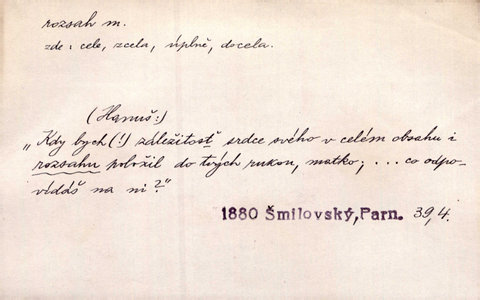 rozsah m.
zde: cele, zcela, úplně, docela.
(Hanuš:)
„Kdy bych (!) záležitost srdce svého v celém obsahu i
rozsahu položil do tvých rukou, matko; ... co odpo-
vídáš na ni?"
1880 Šmilovský, Parn. 39,4.